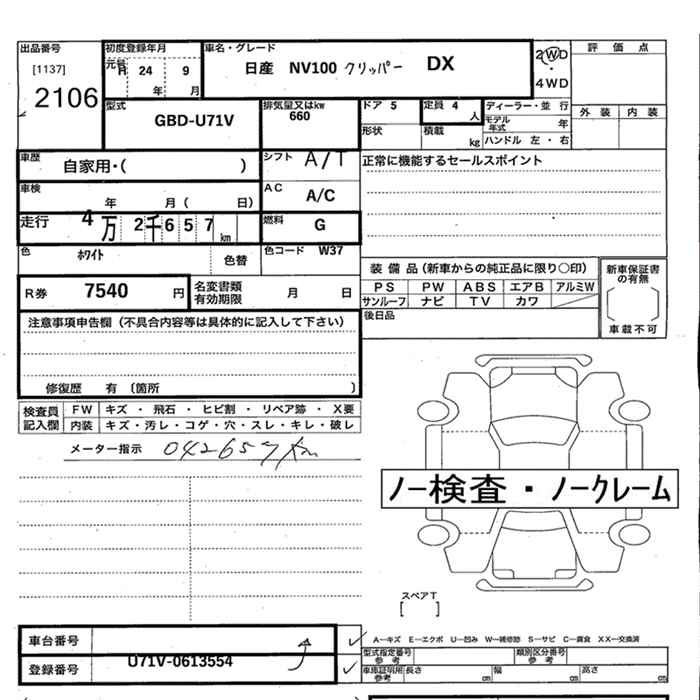 出品番号 初度登録年月 車名・グレード 2WD 評価点
[1137] 元号 H 24 9 日産 NV100 クリッパー DX ・
2106 年 月 4WD
型式 排気量又はkw ドア 5 定員 4 人 ディーラー・並行 外装 内装
GBD-U71V 660 モデル年式 年
形状 積載 kg ハンドル 左・右
車歴 自家用・( ) シフト A/T 正常に機能するセールスポイント
車検 年 月 ( 日) AC A/C
走行 4万 2千657 km 燃料 G
色 ホワイト 色替 色コード W37
装備品 (新車からの純正品に限り○印) 新車保証書の有無
R券 7540 円 名変書類有効期限 月 日 PS PW ABS エアB アルミW
サンルーフ ナビ TV カワ 車載不可
注意事項申告欄 (不具合内容等は具体的に記入して下さい) 後日品
修復歴 有 (箇所 )
検査員記入欄 FW キズ ・ 飛石 ・ ヒビ割 ・ リペア跡 ・ X要
内装 キズ・汚レ・コゲ・穴・スレ・キレ・破レ
メーター指示 042657km
ノー検査・ノークレーム
スペアT
[ ]
車台番号 A―キズ E―エクボ U―凹み W―補修跡 S―サビ C―腐食 XX―交換済
U71V-0613554 型式指定番号 参考 類別区分番号 参考
登録番号 車庫証明用参考 長さ cm 幅 cm 高さ cm